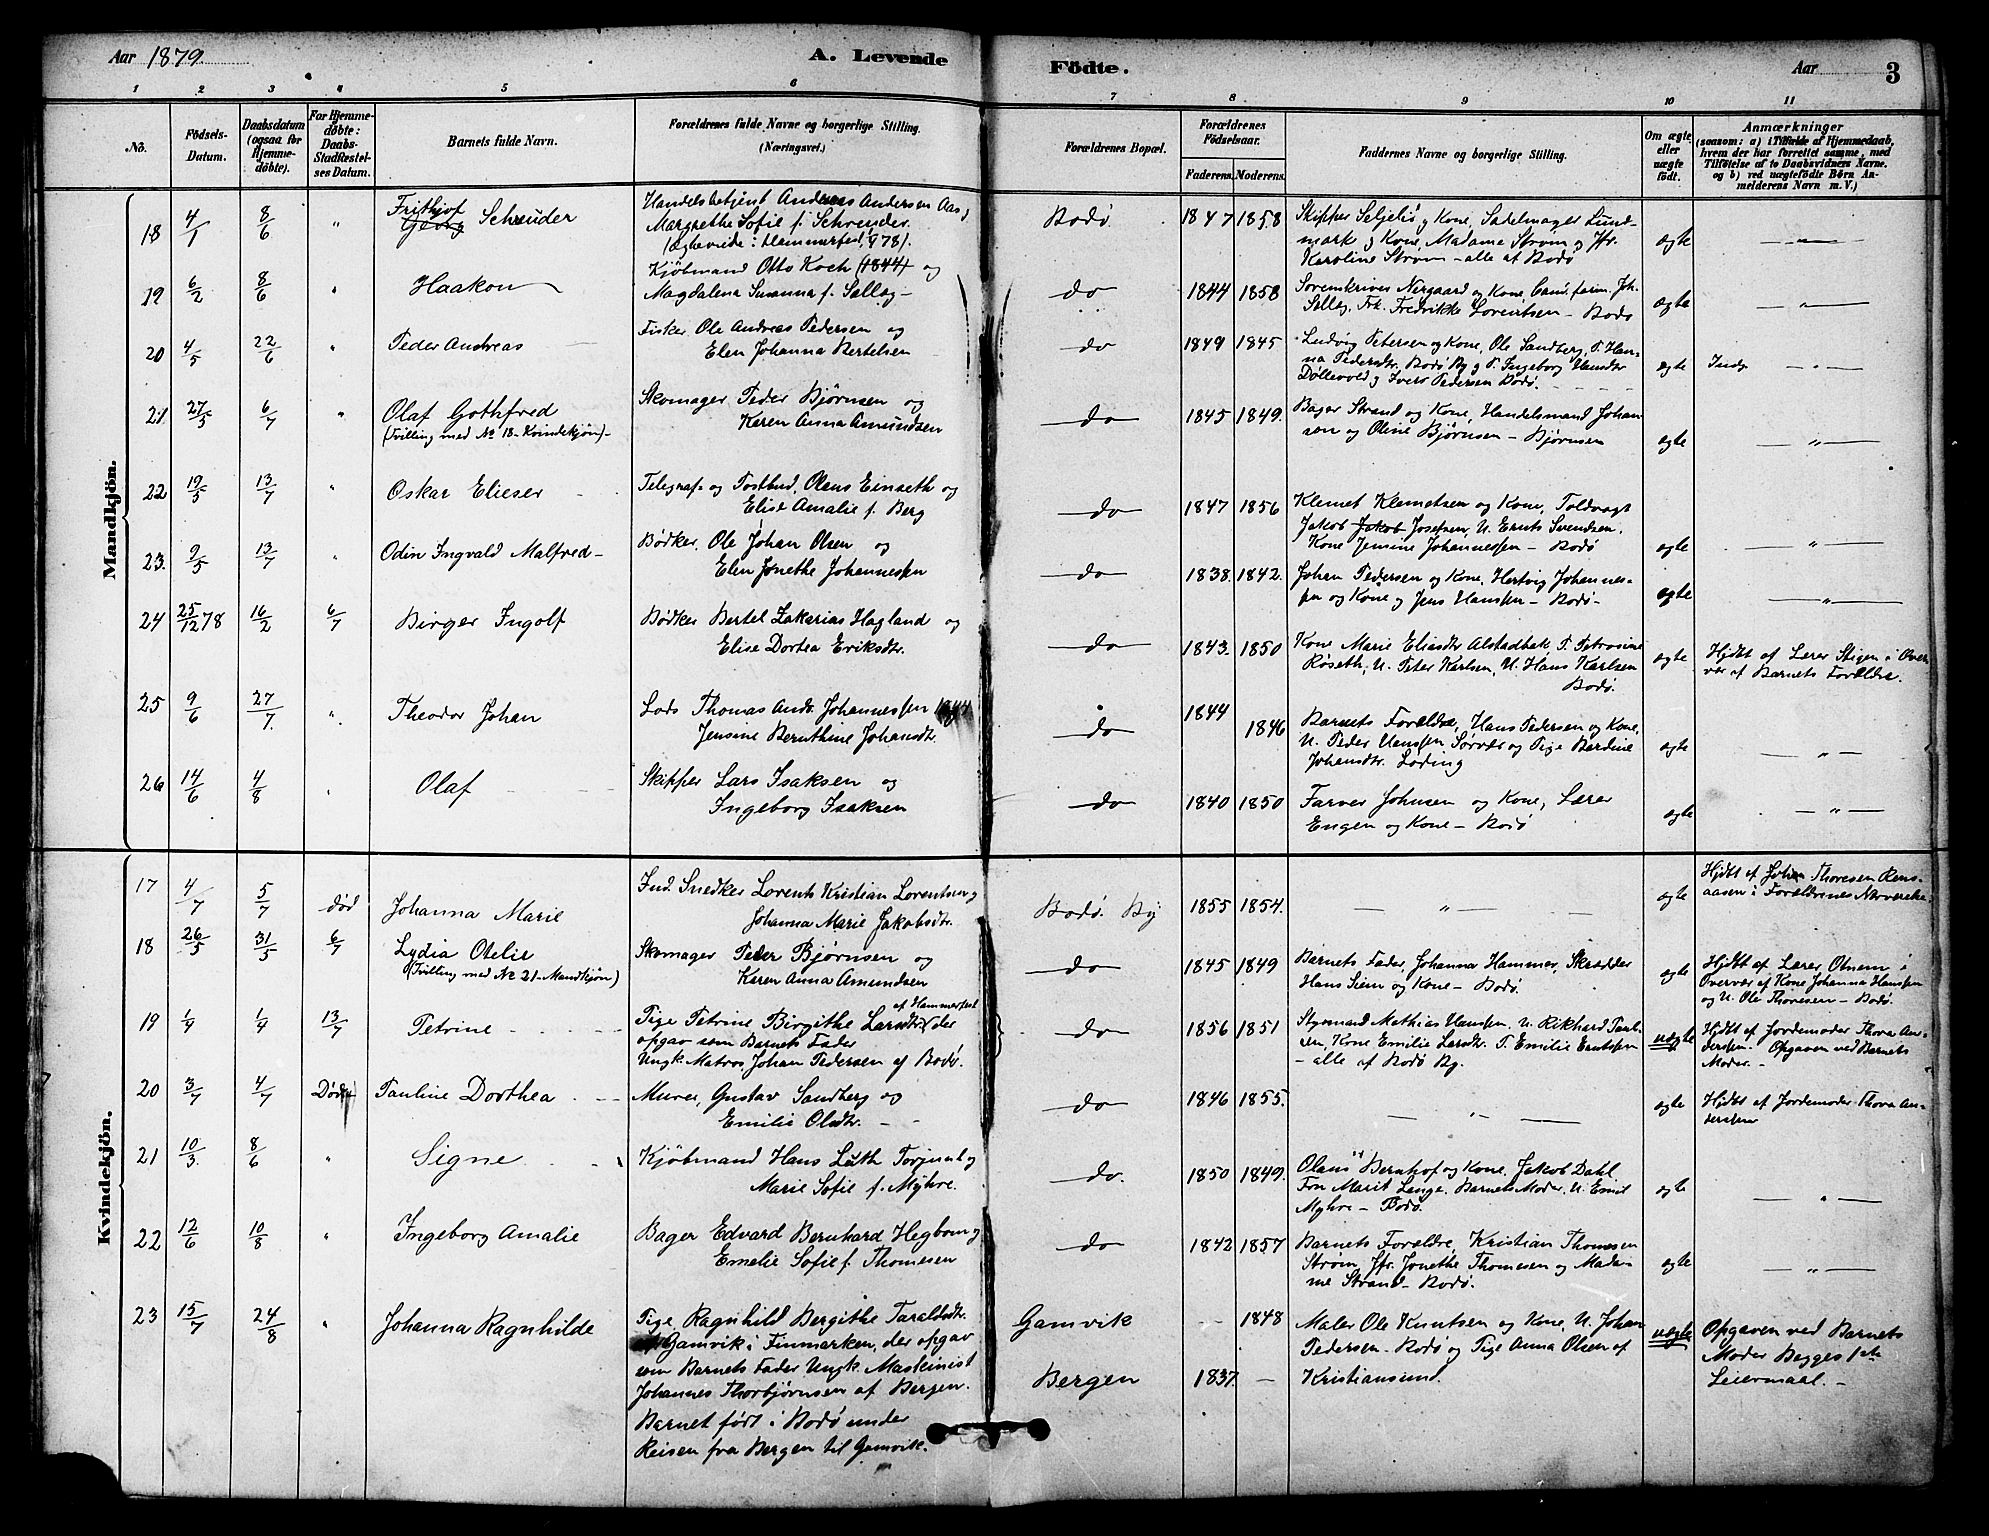 Aar 1879.
A. Levende
Födte.
Aar
3
1 2 3 4 5 6 7 8 9 10 11
No.
Födsels-Datum.
Daabsdatum (ogsaa for Hjemmedöbte).
For Hjemmedöbte: Daabs-Stadfæstelses Datum.
Barnets fulde Navn.
Forældrenes fulde Navne og borgerlige Stilling.
(Næringsvei.)
Forældrenes Bopæl.
Forældrenes Födselsaar.
Faderens. Moderens.
Faddernes Navne og borgerlige Stilling.
Om ægte eller uægte födt.
Anmærkninger
(saasom: a) i Tilfælde af Hjemmedaab,
hvem der har forrettet samme, med
Tilföielse af to Daabsvidners Navne.
og b) ved uægtefödte Börn An-
melderens Navn m. V.)
Mandkjön.
18 4/1 8/6 " Frithjof Georg Schrøder
Handelsbetjent Andreas Andersen Aas,
Margrethe Sofie f. Schrøder.
(Ægteviede: Hammerfest 1878).
Bodø. 1847 1858
Skipper Seljelid og Kone, Sadelmager Lund-
mark og Kone, Madame Strøm og Jfr.
Karoline Strøm – alle af Bodø
ægte — " —
19 6/2 8/6 " Haakon
Kjöbmand Otto Koch (1844) og
Magdalena Susanna f. Selleg –
do 1844 1858
Sorenskriver Nergaard og Kone, Cand. farm. Joh.
Selleg, Frk. Fredrikke Lorentsen – Bodø
ægte — " —
20 4/5 22/6 " Peder Andreas
Fisker Ole Andreas Pedersen og
Elen Johanna Bertelsen
do 1849 1845
Ludvig Petersen og Kone, Ole Sandberg, P. Han-
na Pedersdtr. Bodø By og P. Ingeborg Hansdtr
og Iver Pedersen Bodø.
ægte — " —
21 27/5 6/7 " Olaf Gothfred
(Tvilling med No 18 - Kvindekjön) –
Skomager Peder Bjørnsen og
Karen Anna Amundsen
do 1845 1849.
Bager Strand og Kone, Handelsmand Johan-
sen og Oline Bjørnsen – Bjørnsen
ægte — " —
22 19/5 13/7 " Oskar Elieser
Telegraf- og Postbud, Olaus Einseth og
Elise Amalie f. Berg
do 1847 1856
Klemet Klemetsen og Kone, Toldvagt
Jakob Jakob Josefsen, U. Ernts Svendsen.
Kone Jensine Johannessen – Bodø
ægte — " —
23. 9/5 13/7 " Odin Ingvald Malfred –
Bødker, Ole Johan Olsen og
Elen Jonethe Johannessen
do 1838. 1842.
Johan Pedersen og Kone, Hertvig Johannes-
sen og Kone og Jens Hansen – Bodø –
ægte — " —
24 25/12 78 16/2 6/7 Birger Ingolf
Bødker Bertel Zakarias Hagland og
Elise Dortea Eriksdtr.
do 1843. 1850
Kone Marie Eliasdtr Alstadbak, P. Petrosine
Røseth, U. Peter Karlsen, U. Hans Karlsen
Bodø.
ægte
Hjdbt af Lærer Stigen i Over-
vær af Barnets Forældre.
25 9/6 27/7. " Theodor Johan
Lods Thomas Andr. Johannessen 1844
Jensine Bernthine Johansdtr.
do 1844 1846
Barnets Forældre, Hans Pedersen og Kone,
U. Peder Hanssen Sørvær og Pige Berdine
Johansdtr. Løding
ægte — " —
26 14/6 4/8 " Olaf
Skipper Lars Isaksen og
Ingeborg Isaksen
do 1840 1850
Farver Johnsen og Kone, Lærer
Engen og Kone – Bodø
ægte — " —
Kvindekjön.
17 4/7 5/7 død Johanna Marie
Ind. Snedker Lorents Kristian Lorentsen og
Johanna Marie Jakobsdtr.
Bodø By 1855 1854.
— " —
ægte
Hjdbt af Johan Thoresen Rens-
aasen i Forældrenes Nærværelse.
18 26/5 31/5 6/7 Lydia Otelie
(Tvilling med No 21 - Mandkjön)
Skomager Peder Bjørnsen og
Karen Anna Amundsen
do 1845 1849
Barnets Fader, Johanna Hammer, Skrædder
Hans Siem og Kone – Bodø.
ægte
Hjdbt af Lærer Otnem i
Overvær af Kone Johanna Hanssen
og U. Ole Thoresen – Bodø.
19 1/4 1/4 13/7 Petrine
Pige Petrine Birgithe Larsdtr. af Hammerfest der
opgav som Barnets Fader
Ungk. Matros Johan Pedersen af Bodø.
do 1856 1851
Styrmand Mathias Hanssen, U. Rikhard Paul-
sen, Kone Emilie Larsdtr. P. Emilie Erntssen
– alle af Bodø By.
uægte
Hjdbt af Jordemoder Thora An-
derssen. Opgaven ved Barnets
Moder. –
20 3/7 4/7 Død Pauline Dorthea
Murer, Gustav Sandberg og
Emilie Olsdtr.
do 1846 1855.
— " —
ægte
Hjdbt af Jordemoder Thora An-
derssen
21 10/3. 8/6 " Signe
Kjöbmand Hans Luth Torjussl og
Marie Sofie f. Myhre.
do. 1850 1849.
Olaus Bernhof og Kone, Jakob Dahl
Fru Marit Lange, Barnets Moder, U. Emil
Myhre – Bodø.
ægte — " —
22 12/6 10/8 " Ingeborg Amalie
Bager Edvard Bernhard Hegbom og
Emelie Sofie f. Thomesen
do 1842 1857
Barnets Forældre, Kristian Thomesen
Strøm, Jfr. Jonethe Thomesen og Mada-
me Strand – Bodø.
ægte — " —
23 15/7 24/8 " Johanna Ragnhilde
Pige, Ragnhild Bergithe Taraldsdtr.
Gamvik i Finmarken, der opgav
som Barnets Fader Ungk. Maskinist
Johannes Thorbjørnsen af Bergen.
Barnet født i Bodø under
Reisen fra Bergen til Gamvik.
Gamvik – 1848
Bergen 1837. –
Maler Ole Knutsen og Kone, U. Johan
Pedersen – Bodø og Pige Anna Olsen af
Kristiansund.
uægte
Opgaven ved Barnets
Moder Begges 1ste
Leiermaal. –